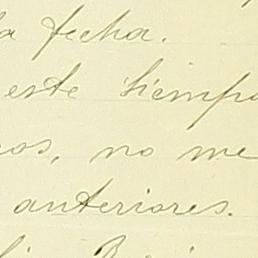 la fecha.
este tiempo
os, no me
anteriores.